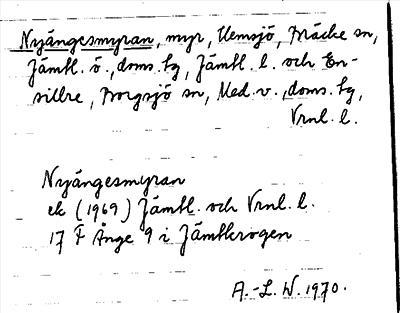 Nyängesmyran, myr, Uemsjö, Bräcke sn,
Jämtl. ö., doms. tg, Jämtl. l. och En-
sillre, Borgsjö sn, Med. v., doms. tg,
Vrnl. l.
Nyängesmyran
ek (1969) Jämtl. och Vrnl. l.
17 F Ånge 9 i Jämtkrogen
A.-L. W. 1970.